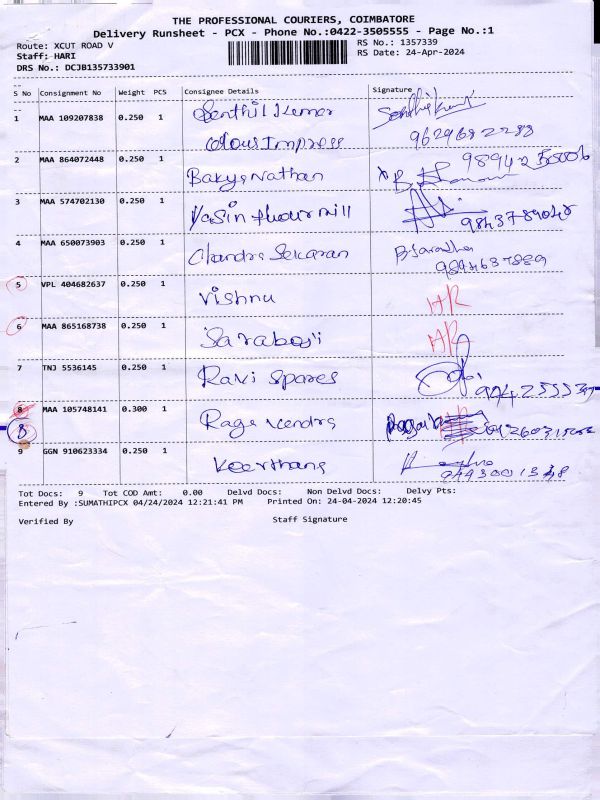 THE PROFESSIONAL COURIERS, COIMBATORE
Delivery Runsheet - PCX - Phone No.:0422-3505555 - Page No.:1
Route: XCUT ROAD V RS No.: 1357339
Staff: HARI RS Date: 24-Apr-2024
DRS No.: DCJB135733901
S No Consignment No Weight PCS Consignee Details Signature
1 MAA 109207838 0.250 1 Senthil Kumar
Colour Impress 9629682288
2 MAA 864072448 0.250 1 Bakya Nathan
3 MAA 574702130 0.250 1 Yasin flour mill
4 MAA 650073903 0.250 1 Chandra Sekaran
5 VPL 404682637 0.250 1 Vishnu
6 MAA 865168738 0.250 1 Saraboji
7 TNJ 5536145 0.250 1 Ravi Spares
8 MAA 105748141 0.300 1 Ragavendra
8
9 GGN 910623334 0.250 1 Keerthana
Tot Docs: 9 Tot COD Amt: 0.00 Delvd Docs: Non Delvd Docs: Delvy Pts:
Entered By :SUMATHIPCX 04/24/2024 12:21:41 PM Printed On: 24-04-2024 12:20:45
Verified By Staff Signature